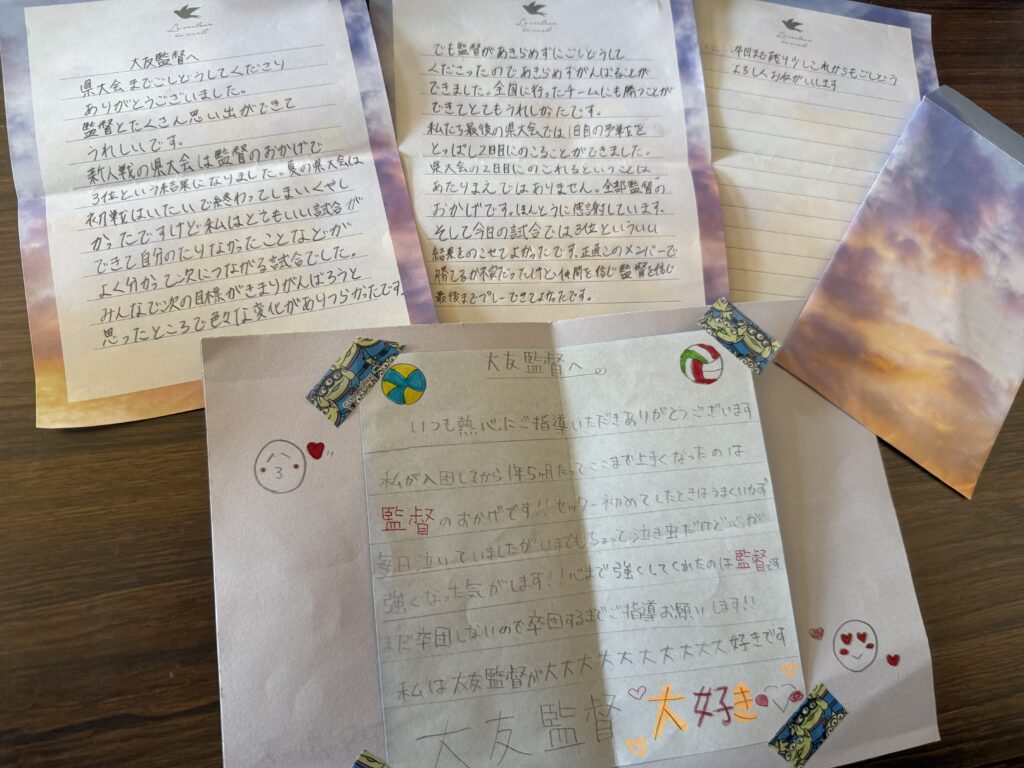 大友監督へ
県大会までごしどうしてくださり
ありがとうございました。
監督とたくさん思い出ができて
うれしいです。
新人戦の県大会は監督のおかげで
3位という結果になりました。夏の県大会は
初戦はいたいで終わってしまいくやし
かったですけど私はとてもいい試合が
できて自分のたりなかったことなどが
よく分かって次につながる試合でした。
みんなで次の目標がきまりがんばろうと
思ったところで色々な変化がありつらかったです。
でも監督があきらめずにごしどうして
くださったのであきらめずがんばることが
できました。全国に行ったチームにも勝つことが
できてとてもうれしかったです。
私たち最後の県大会では1日目の予選をを
とっぱし2日目にのこることができました。
県大会の2日目にのこれるということは
あたりまえではありません。全部監督の
おかげです。ほんとうに感謝しています。
そして今日の試合では3位といういい
結果をのこせてよかったです。正直このメンバーで
勝てるか不安だったけど仲間を信じ監督を信じ
最後までプレーできてよかったです。
卒団まで残り少しこれからもごしどう
よろしくおねがいします
大友監督へ
いつも熱心にご指導いただきありがとうございます
私が入団してから1年5ヶ月たってここまで上手くなったのは
監督のおかげです!!セッター初めてしたときはうまくいかず
毎日泣いていましたがいまでもちょって泣き虫だけど心が
強くなった気がします!!心まで強くしてくれたのは監督です
まだ卒団しないので卒団するまでご指導お願いします!!
私は大友監督が大大大大大大大大大大好きです
大友監督♡大好き♡